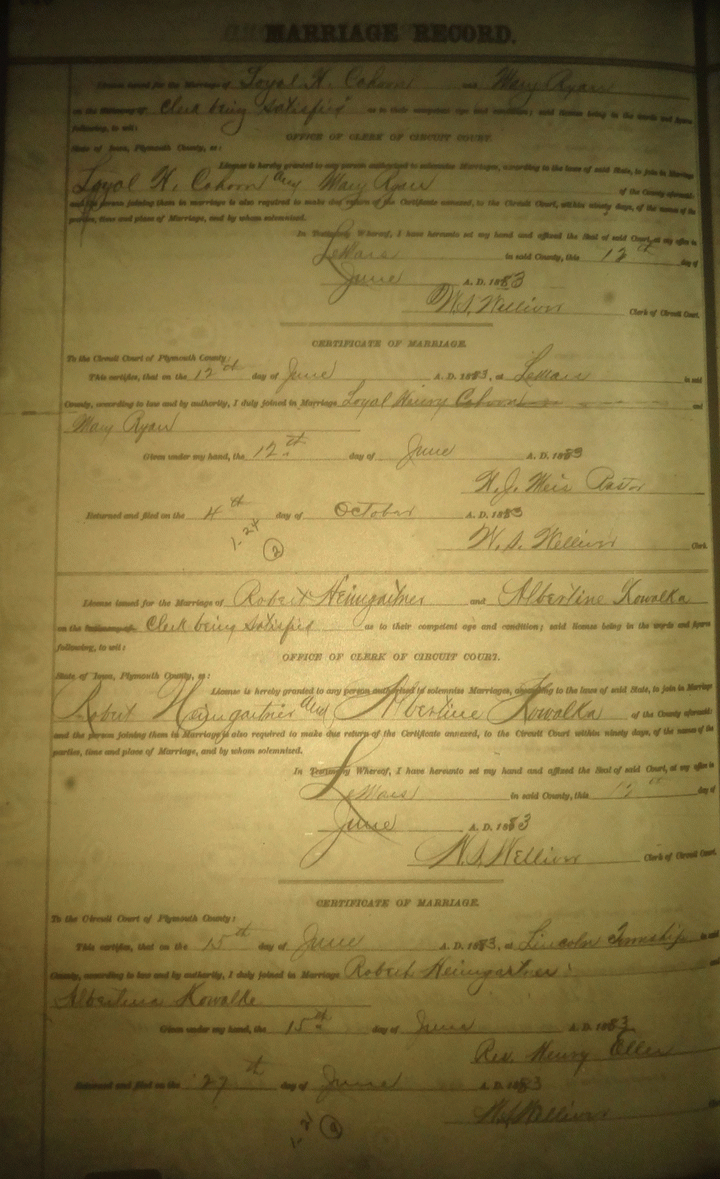 MARRIAGE RECORD.
License issued for the Marriage of Loyal H. Cahoon and Mary Ryan
on the Testimony of Clerk being Satisfied as to their competent age and condition; said license being in the words and figures
following, to wit:
OFFICE OF CLERK OF CIRCUIT COURT.
State of Iowa, Plymouth County, ss:
License is hereby granted to any person authorized to solemnize Marriages, according to the laws of said State, to join in Marriage
Loyal H. Cahoon and Mary Ryan of the County aforesaid:
and the person joining them in marriage is also required to make due return of the Certificate annexed, to the Circuit Court, within ninety days, of the names of the
parties, time and place of Marriage, and by whom solemnized.
In Testimony Whereof, I have hereunto set my hand and affixed the Seal of said Court, at my office in
LeMars in said County, this 12th day of
June A. D. 1883
W. S. Welliver Clerk of Circuit Court.
CERTIFICATE OF MARRIAGE.
To the Circuit Court of Plymouth County:
This certifies, that on the 12th day of June A. D. 1883, at LeMars in said
County, according to law and by authority, I duly joined in Marriage Loyal Henry Cahoon and
Mary Ryan
Given under my hand, the 12th day of June A. D. 1883
Pastor
Returned and filed on the 4th day of October A. D. 1883
W. S. Welliver Clerk.
1-24 2
License issued for the Marriage of Robert Heimgartner and Albertine Kowalka
on the Testimony of Clerk being Satisfied as to their competent age and condition; said license being in the words and figures
following, to wit:
OFFICE OF CLERK OF CIRCUIT COURT.
State of Iowa, Plymouth County, ss:
License is hereby granted to any person authorized to solemnize Marriages, according to the laws of said State, to join in Marriage
Robert Heimgartner and Albertine Kowalka of the County aforesaid:
and the person joining them in Marriage is also required to make due return of the Certificate annexed, to the Circuit Court within ninety days, of the names of the
parties, time and place of Marriage, and by whom solemnized.
In Testimony Whereof, I have hereunto set my hand and affixed the Seal of said Court, at my office in
LeMars in said County, this 12th day of
June A. D. 1883
W. S. Welliver Clerk of Circuit Court.
CERTIFICATE OF MARRIAGE.
To the Circuit Court of Plymouth County:
This certifies, that on the 15th day of June A. D. 1883, at Lincoln Township in said
County, according to law and by authority, I duly joined in Marriage Robert Heimgartner and
Albertina Kowalke
Given under my hand, the 15th day of June A. D. 1883
Rev. Henry Eller
Returned and filed on the 27th day of June A. D. 1883
W. S. Welliver
1-21